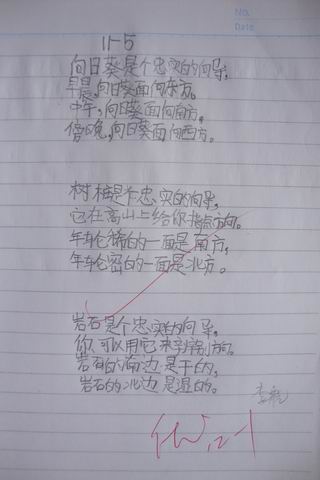 No.
Date
11-5
向日葵是个忠实的向导,
早晨,向日葵面向东方。
中午,向日葵面向南方。
傍晚,向日葵面向西方。
树桩是个忠实的向导,
它在高山上给你指点方向。
年轮稀的一面是南方,
年轮密的一面是北方。
岩石是个忠实的向导,
你可以用它来辨别方向。
岩石的南边是干的,
岩石的北边是湿的。